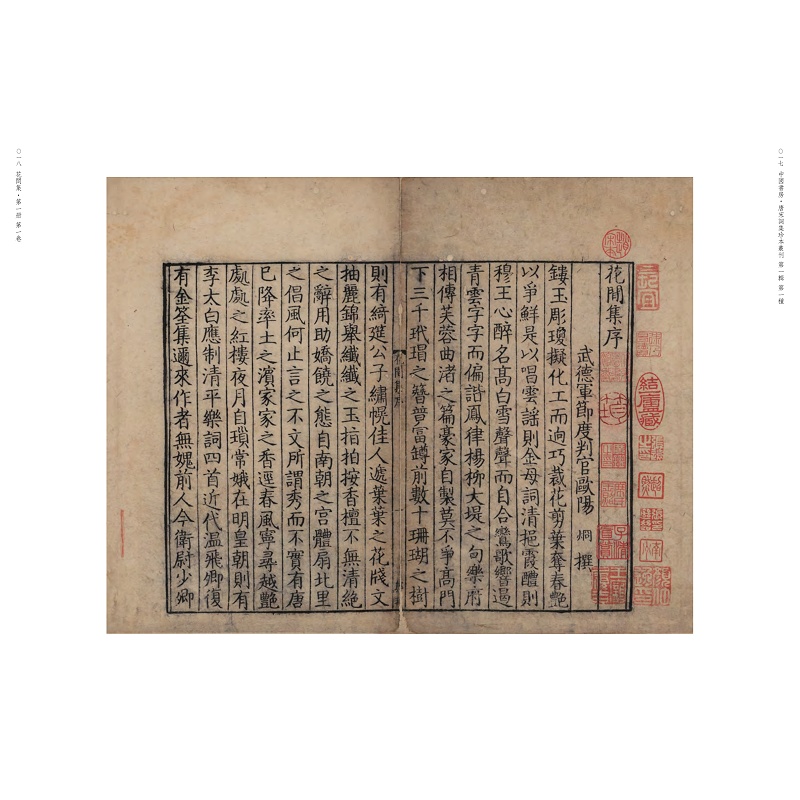 〇一七 中國書房·唐宋詞集珍本叢刊 第一輯 第一種
花間集序
武德軍節度判官歐陽 烱 撰
鏤玉彫瓊擬化工而逈巧裁花剪葉奪春艷
以爭鮮是以唱雲謠則金母詞清挹霞醴則
穆王心醉名髙白雪聲聲而自合鸞歌響遏
青雲字字而偏諧鳳律楊柳大堤之句樂府
相傳芙蓉曲渚之篇豪家自製莫不爭髙門
下三千玳瑁之簪普富罇前數十珊瑚之樹
則有綺筵公子繡幌佳人遞葉葉之花牋文
抽麗錦舉纖纖之玉指拍按香檀不無清絶
之辭用助嬌饒之態自南朝之宫體扇北里
之倡風何止言之不文所謂秀而不實有唐
已降率土之濱家家之香逕春風寧尋越艷
處處之紅樓夜月自瑣常娥在明皇朝則有
李太白應制清平樂詞四首近代温飛卿復
有金筌集邇來作者無媿前人今衛尉少卿
〇一八 花間集·第一册 第一卷
結廬藏